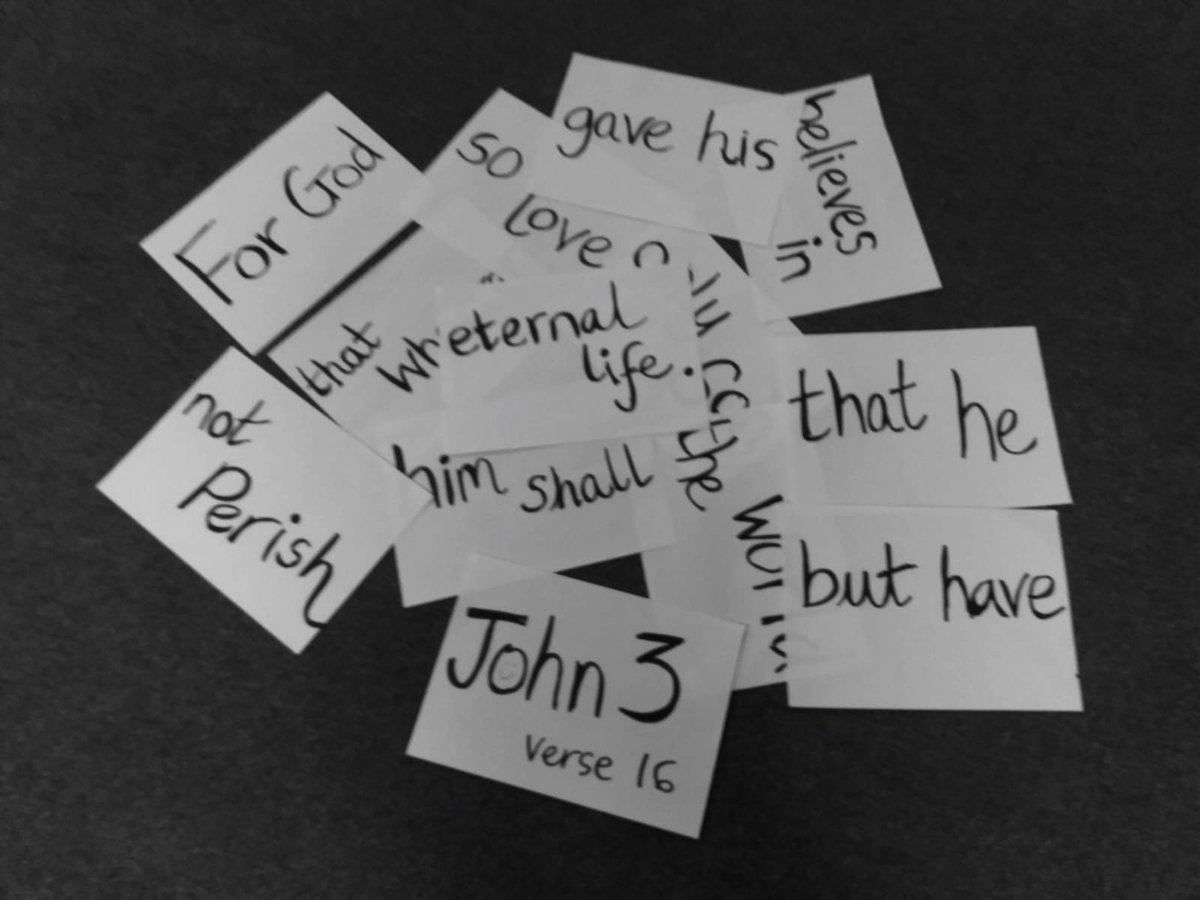 For God
so
love
gave his
believes
in
that
eternal
life.
the
that he
not
Perish
him shall
but have
John 3
verse 16